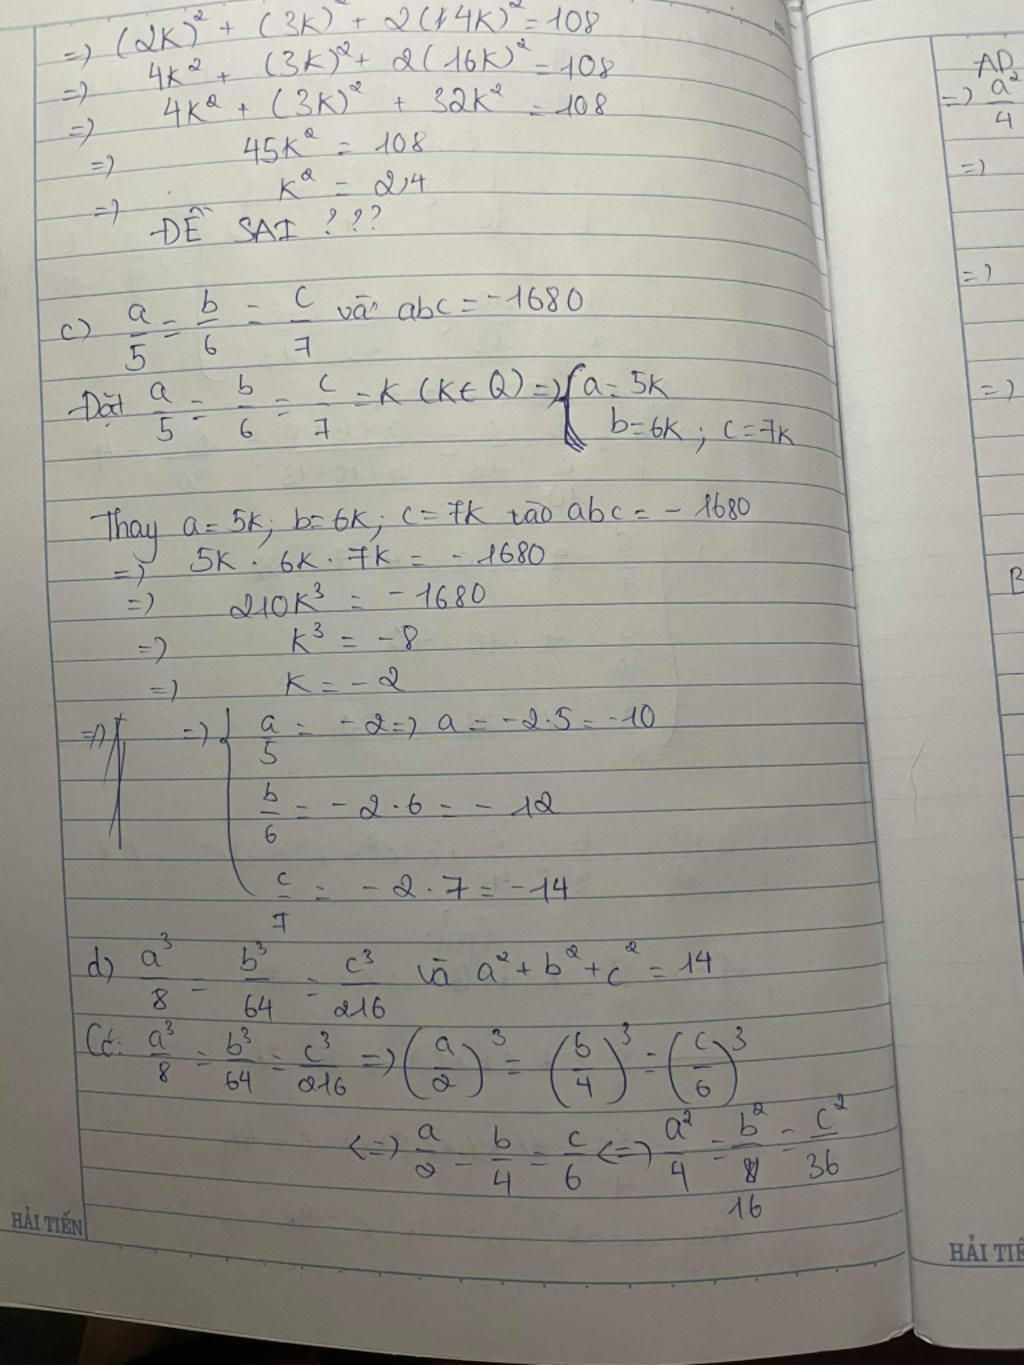 =) (2K)² + (3K)² + 2(4K)² = 108
=) 4K² + (3K)² + 2(16K)² = 108
=) 4K² + (3K)² + 32K² = 108
=) 45K² = 108
=) K² = 2,4
ĐỀ SAI ???
c) a/5 = b/6 = c/7 và abc = -1680
Đặt a/5 = b/6 = c/7 = K (K ∈ Q) =) { a = 5K
b = 6K ; c = 7K
Thay a = 5K; b = 6K; c = 7K vào abc = - 1680
=) 5K . 6K . 7K = - 1680
=) 210K³ = - 1680
=) K³ = - 8
=) K = - 2
=) { a/5 = - 2 =) a = -2.5 = -10
b/6 = - 2 . 6 = - 12
c/7 = - 2 . 7 = - 14
d) a³/8 = b³/64 = c³/216 và a² + b² + c² = 14
Có: a³/8 = b³/64 = c³/216 =) (a/2)³ = (b/4)³ = (c/6)³
<=) a/2 = b/4 = c/6 <=) a²/4 = b²/16 = c²/36
HẢI TIẾN
AD
=) a²/4
=)
=)
=)
B
HẢI TIẾ